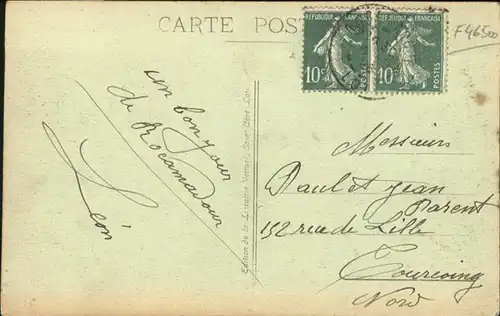 CARTE POS
RÉPUBLIQUE FRANÇAISE
10c POSTES
RÉPUBLIQUE FRANÇAISE
10c POSTES
F46500
un bonjour
de Rocamadour
Léon
Edition de la Librairie Vertuel, Saint-Céré, Lot
Messieurs
Paul et Jean
Parent
152 rue de Lille
Tourcoing
Nord